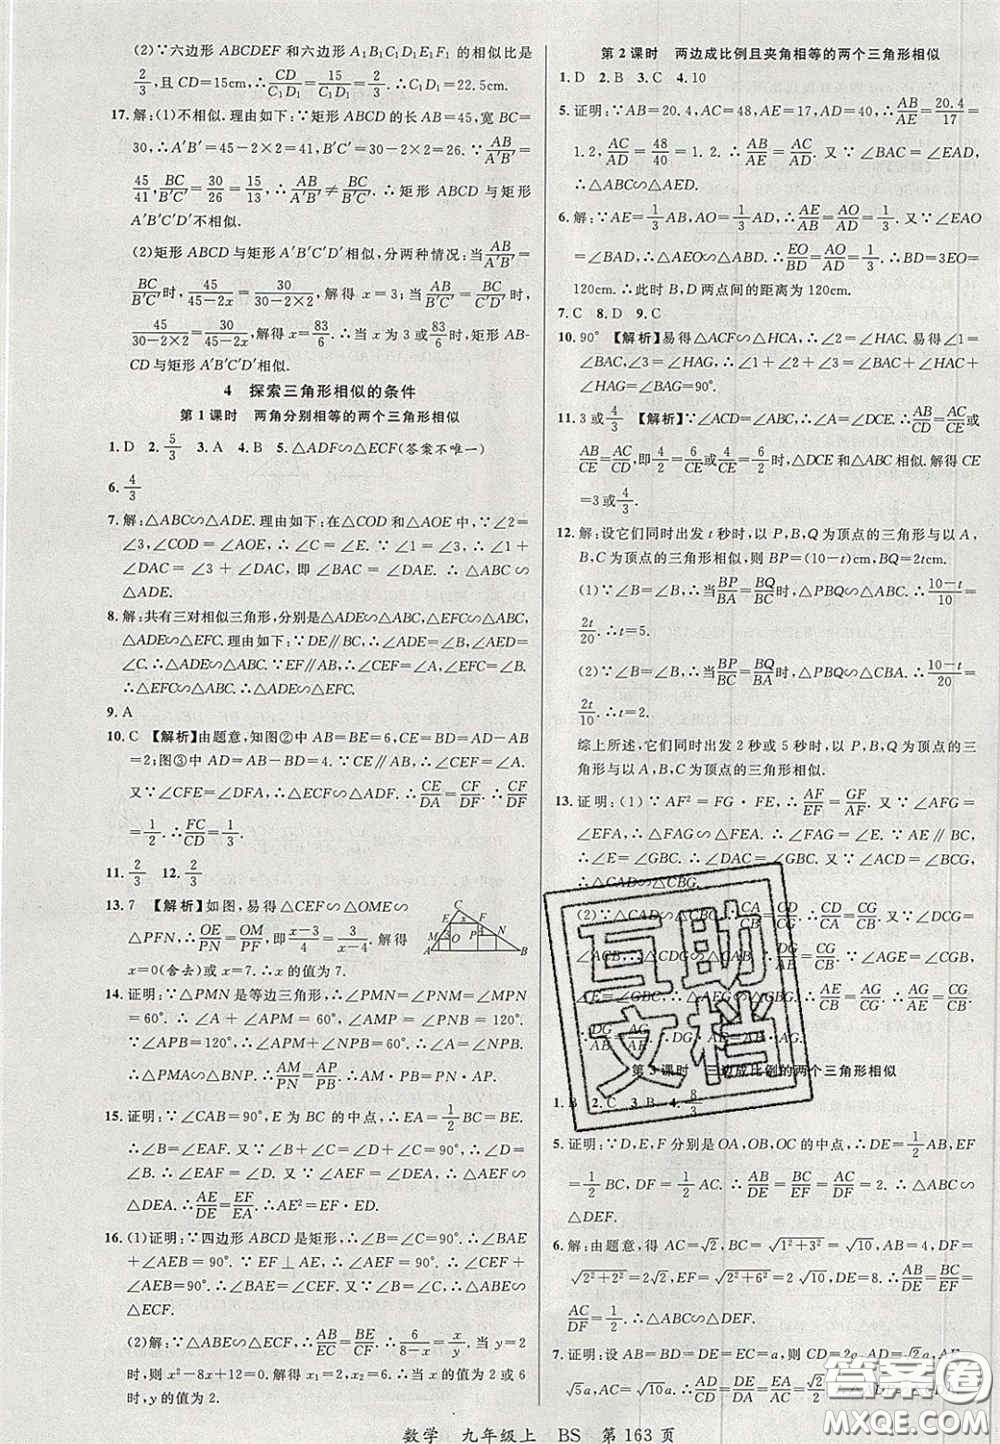 (2)∵六边形 ABCDEF 和六边形 A₁B₁C₁D₁E₁F₁ 的相似比是
2/3,且 CD=15cm,∴CD/C₁D₁=2/3.∴C₁D₁=22.5cm.
17.解:(1)不相似.理由如下:∵矩形 ABCD 的长 AB=45,宽 BC=
30,∴A′B′=45-2×2=41,B′C′=30-2×2=26.∵AB/A′B′=
45/41,BC/B′C′=30/26=15/13,∴AB/A′B′≠BC/B′C′.∴矩形 ABCD 与矩形
A′B′C′D′不相似.
(2)矩形 ABCD 与矩形 A′B′C′D′相似,分两种情况:当AB/A′B′=
BC/B′C′时,45/(45-2x)=30/(30-2×2),解得 x=3;当AB/B′C′=BC/A′B′时,
45/(30-2×2)=30/(45-2x),解得 x=83/6.∴当 x 为 3 或83/6时,矩形 AB-
CD 与矩形 A′B′C′D′相似.
4 探索三角形相似的条件
第 1 课时 两角分别相等的两个三角形相似
1.D 2.5/3 3.A 4.B 5.△ADF∽△ECF(答案不唯一)
6.4/3
7.解:△ABC∽△ADE.理由如下:在△COD 和△AOE 中,∵∠2=
∠3,∠COD=∠AOE,∴∠C=∠E.∵∠1=∠2,∴∠2+
∠DAC=∠1+∠DAC,即∠BAC=∠DAE.∴△ABC∽
△ADE.
8.解:共有三对相似三角形,分别是△ADE∽△ABC,△EFC∽△ABC,
△ADE∽△EFC.理由如下:∵DE∥BC,∴∠ADE=∠B,∠AED=
∠C.∴△ADE∽△ABC.∵EF∥AB,∴∠CEF=∠A,∠EFC=∠B.
∴△EFC∽△ABC.∴△ADE∽△EFC.
9.A
10.C 【解析】由题意,知图②中 AB=BE=6,CE=BD=AD-AB
=2;图③中 AD=AB-BD=4.∵∠C=∠FDA=∠CEF=90°,
又∵∠CFE=∠DFA,∴△CEF∽△DAF.∴CE/DA=CF/DF.∴CF/DF
=1/2.∴FC/CD=1/3.
11.2/3 12.2/3
13.7 【解析】如图,易得△CEF∽△OME∽
△PFN,∴OE/PN=OM/PF,即(x-3)/4=3/(x-4).解得
x=0(舍去)或 x=7.∴x 的值为 7.
14.证明:∵△PMN 是等边三角形,∴∠PMN=∠PNM=∠MPN
=60°.∴∠A+∠APM=60°,∠AMP=∠PNB=120°.
∵∠APB=120°,∴∠APM+∠BPN=60°.∴∠A=∠BPN.
∴△PMA∽△BNP.∴AM/PN=PM/BN.∴AM·BN=PN·PM.
15.证明:∵∠CAB=90°,E 为 BC 的中点,∴EA=1/2BC=BE.
∴∠B=∠EAF.∵∠D+∠C=∠B+∠C=90°,∴∠D=∠B.
∴∠EAF=∠D.又∵∠AEF=∠DEA,∴△AEF∽
△DEA.∴AE/DE=EF/EA.∴AE²=EF·ED.
16.(1)证明:∵四边形 ABCD 是矩形,∴∠B=∠C=90°.∴∠BAE
+∠AEB=90°.∵EF⊥AE,∴∠AEF=90°.∴∠AEB+
∠FEC=90°.∴∠BAE=∠CEF.又∵∠B=∠C,∴△ABE∽
△ECF.
(2)解:∵△ABE∽△ECF,∴AB/EC=BE/CF.∴6/(8-x)=x/y.当 y=2
时,x²-8x+12=0.解得 x₁=2,x₂=6.∴当 x 的值为 2 或 6
时,y 的值为 2.
第 2 课时 两边成比例且夹角相等的两个三角形相似
1.D 2.B 3.C 4.10
5.证明:∵AB=20.4,AC=48,AE=17,AD=40,∴AB/AE=20.4/17=
1.2,AC/AD=48/40=1.2.∴AB/AE=AC/AD.又∵∠BAC=∠EAD,
∴△ABC∽△AED.
6.解:∵AE=1/3AB,AO=1/3AD,∴AE/AB=AO/AD=1/3.又∵∠EAO
=∠BAD,∴△AEO∽△ABD.∴EO/BD=AO/AD=1/3.∴BD=3EO=
120cm.∴此时 B,D 两点间的距离为 120cm.
7.C 8.D 9.C
10.90° 【解析】易得△ACF∽△HCA,∴∠2=∠HAC.又∵∠1=
∠BAC,∠3=∠HAG,∴∠1+∠2+∠3=∠BAC+∠HAC+
∠HAG=90°.
11.3 或4/3 【解析】∵∠ACD=∠ABC,∴∠A=∠DCE.∴AB/CD=AC/CE或
AB/CE=AC/CD,即4/2=6/CE或4/CE=6/2时,△DCE 和△ABC 相似.解得 CE
=3 或4/3.
12.解:设它们同时出发 t 秒时,以 P,B,Q 为顶点的三角形与以 A,
B,C 为顶点的三角形相似,则 BP=(10-t)cm,BQ=2tcm.
(1)∵∠B=∠B,∴当BP/BA=BQ/BC时,△PBQ∽△ABC.∴(10-t)/10=
2t/20.∴t=5.
(2)∵∠B=∠B,∴当BP/BC=BQ/BA时,△PBQ∽△CBA.∴(10-t)/20=
2t/10.∴t=2.
综上所述,它们同时出发 2 秒或 5 秒时,以 P,B,Q 为顶点的三
角形与以 A,B,C 为顶点的三角形相似.
13.证明:(1)∵AF²=FG·FE,∴AF/EF=GF/AF.又∵∠AFG
=∠EFA,∴△FAG∽△FEA.∴∠DAC=∠E.∵AE∥BC,
∴∠E=∠GBC.∴∠DAC=∠GBC.又∵∠ACD=∠BCG,
∴△CAD∽△CBG.
(2)∵△CAD∽△CBG,∴CA/CB=CD/CG.∴CA/CD=CB/CG.又∵∠DCG
=∠ACB,∴△CDG∽△CAB.∴DG/AB=CG/CB.∵∠AGE=∠CGB,
∠E=∠GBC,∴△AGE∽△CGB.∴AE/CB=AG/CG.∴AG/AE=CG/CB.
∴DG/AB=AG/AE.∴
第 3 课时 三边成比例的两个三角形相似
1.B 2.C 3.B 4.8/3
5.证明:∵D,E,F 分别是 OA,OB,OC 的中点,∴DE=1/2AB,EF
=1/2BC,DF=1/2AC.∴AB/DE=BC/EF=AC/DF=2.∴△ABC∽
△DEF.
6.解:由题意,得 AC=√2,BC=√(1²+3²)=√10,AB=4,DF=
√(2²+2²)=2√2,EF=√(2²+6²)=2√10,DE=8.∴AB/DE=BC/EF=
AC/DF=1/2.∴△ABC∽△DEF.
7.证明:设 AB=BC=CD=DE=a,则 CD=2a,AD=√2a,
AE=√5a,AC=√10a.∴
互助
文档
答案圈
MXQE.COM
数学 九年级上 BS 第 163 页